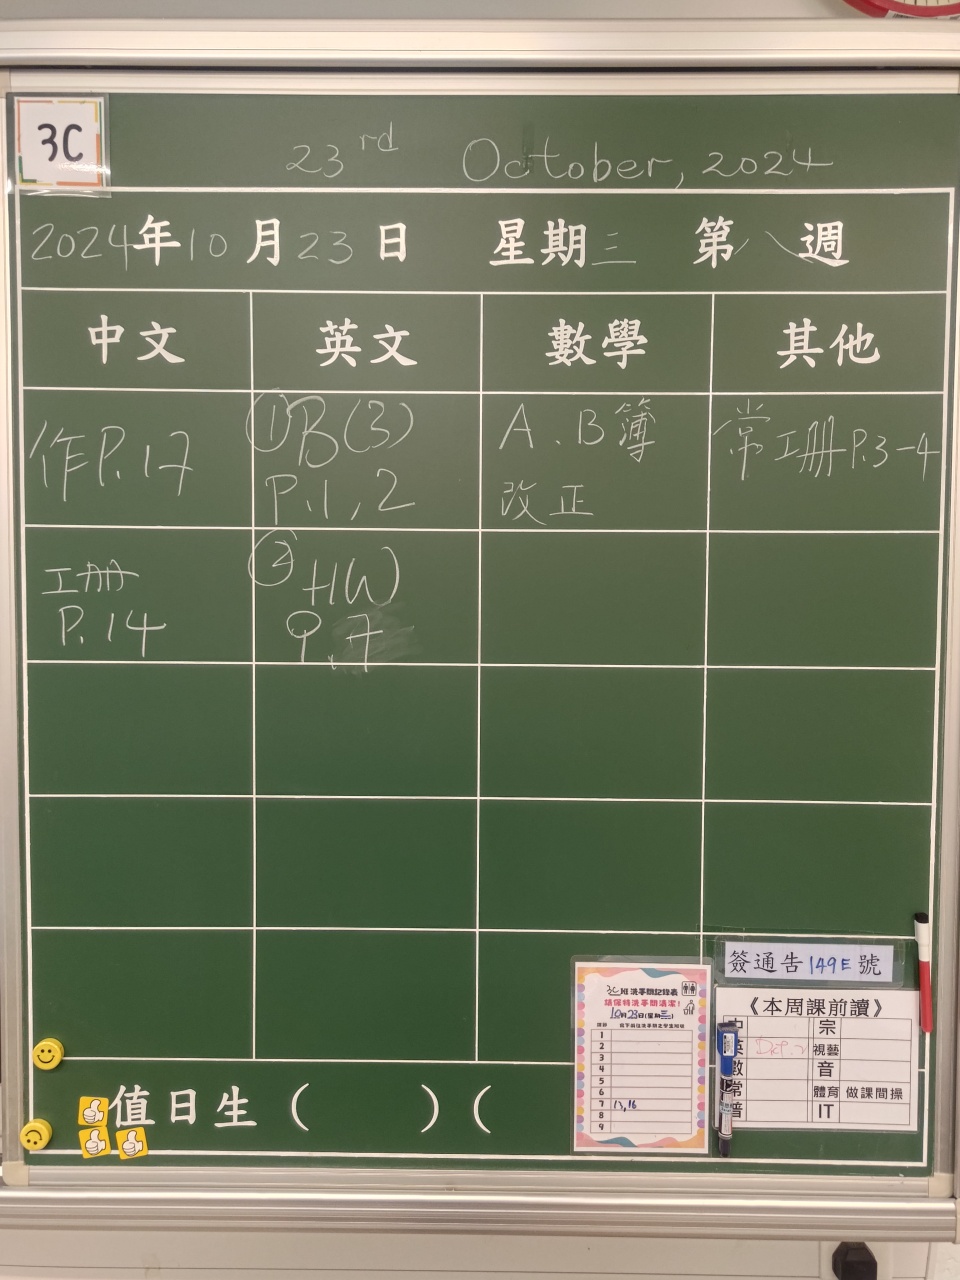 3C
23rd October, 2024
2024年10月23日 星期三 第八週
中文 英文 數學 其他
作P.17
①B(3)
P.1,2
A、B簿
改正
常工冊P.3-4
工冊
P.14
②HW
P.7
簽通告149E號
《本周課前讀》
宗
英 Dict. 2 視藝
數 音
常 體育 做課間操
普 IT
3C班洗手間記錄表
請保持洗手間清潔!
10月23日(星期三)
1
2
3
4
5
6
7 17,16
8
9
值日生( )(